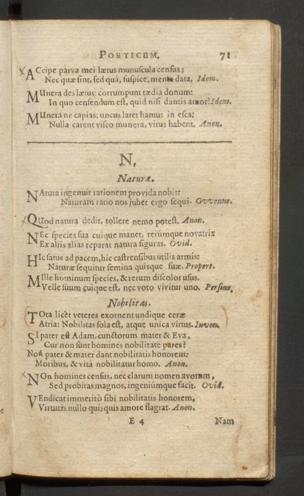 POETICUM. 71
ACcipe parva mei lætus munuscula census;
Nec quæ sint, sed quâ, suspice, mente data. Idem.
MUnera des lætus: corrumpunt tædia donum:
In quo censendum est, quid nisi dantis amor? Idem.
MUnera ne capias: uncus latet hamus in esca:
Nulla carent visco munera, virus habent. Anon.
N,
Naturæ.
NAtura ingenuit rationem provida nobis:
Naturam ratio nos jubet ergo sequi. Owenus.
QUod natura dedit, tollere nemo potest. Anon.
NEc species sua cuique manet, rerúmque novatrix
Ex aliis alias reparat natura figuras. Ovid.
HIc satus ad pacem, hic castrensibus utilis armis:
Naturæ sequitur semina quisque suæ. Propert.
MIlle hominum species, & rerum discolor usus.
Velle suum cuique est, nec voto vivitur uno. Persius.
Nobilitas.
TOta licèt veteres exornent undique ceræ
Atria: Nobilitas sola est, atque unica virtus. Iuven.
SI pater est Adam, cunctorum mater & Eva,
Cur non sunt homines nobilitate pares?
Non pater & mater dant nobilitatis honorem:
Moribus, & vitâ nobilitatur homo. Anon.
NOn homines census, nec clarum nomen avorum,
Sed probitas magnos, ingeniúmque facit. Ovid.
VEndicat immeritò sibi nobilitatis honorem,
Virtutis nullo qui quis amore flagrat. Anon.
E 4 Nam